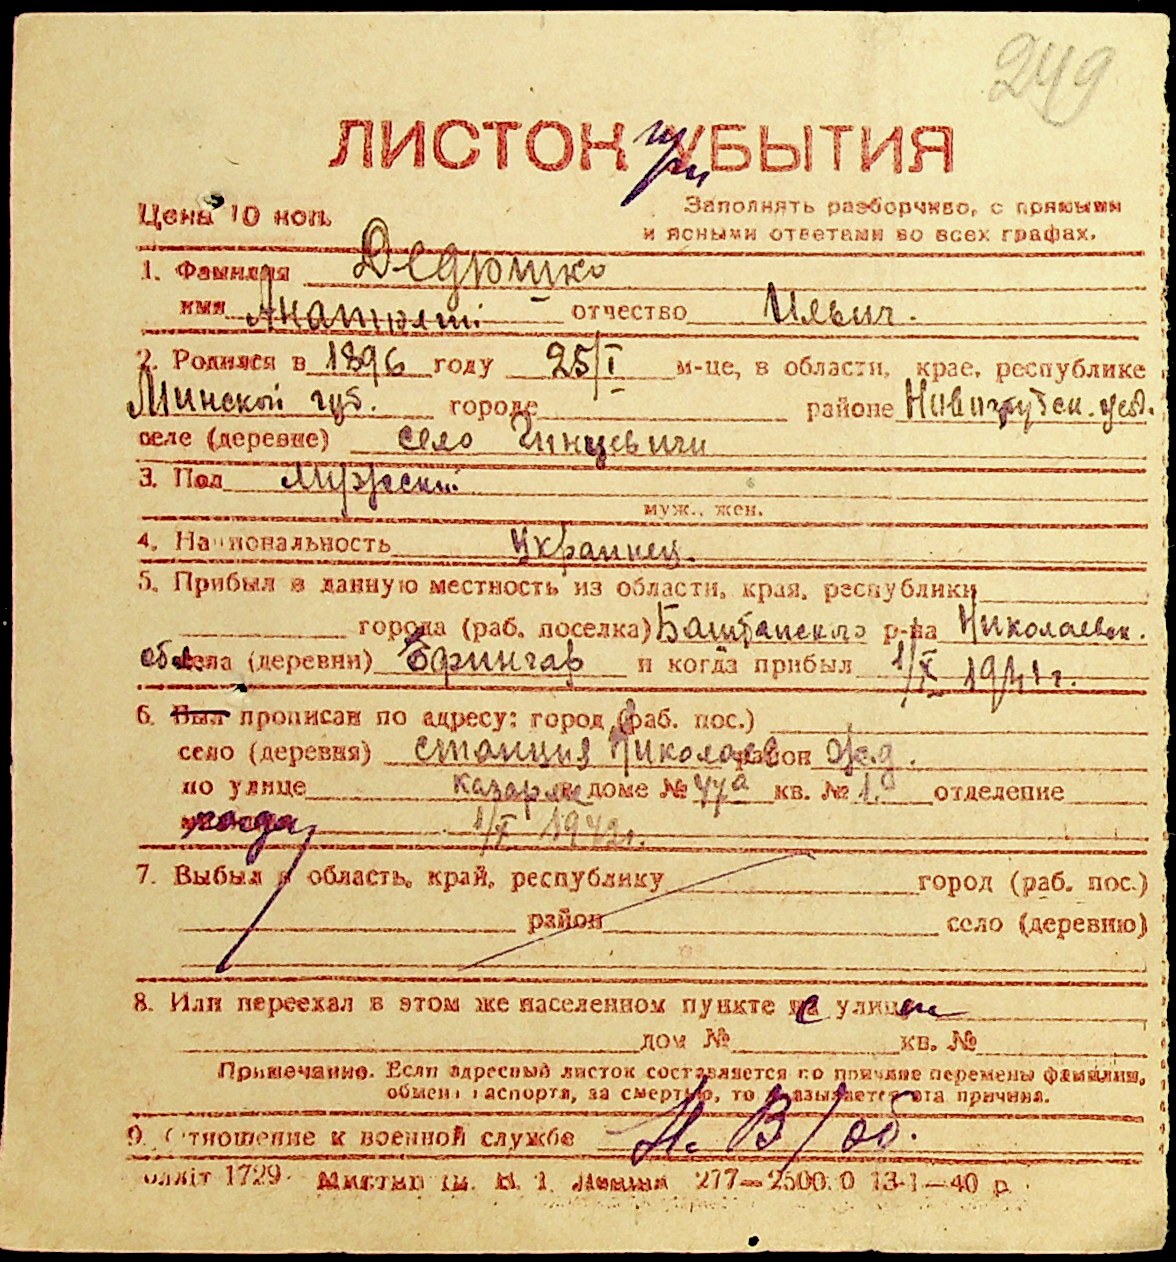 249
ЛИСТОК при УБЫТИЯ
Цена 10 коп.
Заполнять разборчиво, с прямыми
и ясными ответами во всех графах.
1. Фамилия Дедюшко
имя Анатолій отчество Ильич.
2. Родился в 1896 году 25/I м-це, в области, крае, республике
Минской губ. городе районе уезд.
селе (деревне) село Чинцевичи
3. Пол Мужский
муж., жен.
4. Национальность Украинец.
5. Прибыл в данную местность из области, края, республики
города (раб. поселка) Баштанского р-на Николаевск.
обл. села (деревни) Ефингар и когда прибыл 1/X 1941 г.
6. Был прописан по адресу: город (раб. пос.)
село (деревня) станция Николаев район жд.
по улице казарме доме № 47а кв. № 1. отделение
когда 1/X 1942г.
7. Выбыл в область, край, республику город (раб. пос.)
район село (деревню)
8. Или переехал в этом же населенном пункте с улицы
дом № кв. №
Примечание. Если адресный листок составляется по причине перемены фамилии,
обмена паспорта, за смертью, то указывается эта причина.
9. Отношение к военной службе Н. В/об.
1729 277—2500.0 13-1—40 р.